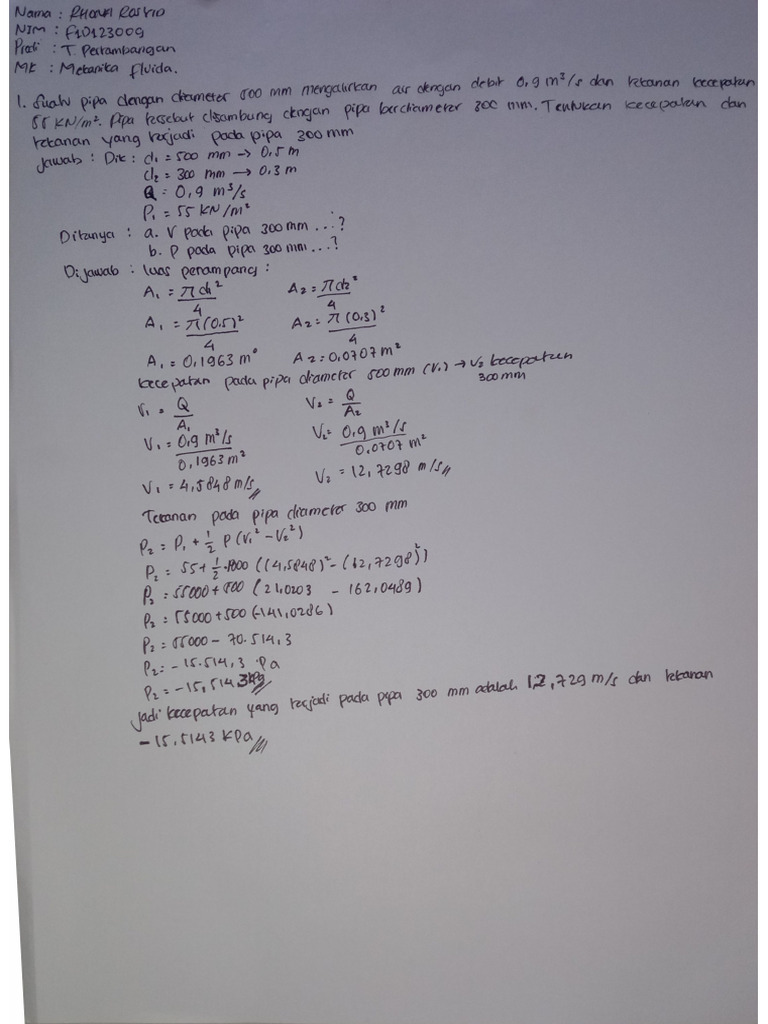 Nama : RHONA Rasyid
NIM : F10123009
Prodi : T. Pertambangan
MK : Mekanika fluida.
1. Suatu pipa dengan diameter 500 mm mengalirkan air dengan debit 0,9 m³/s dan tekanan kecepatan
55 KN/m². Pipa tersebut disambung dengan pipa berdiameter 300 mm. Tentukan kecepatan dan
tekanan yang terjadi pada pipa 300 mm
Jawab : Dik : d₁ = 500 mm → 0,5 m
d₂ = 300 mm → 0,3 m
Q = 0,9 m³/s
P₁ = 55 KN/m²
Ditanya : a. V pada pipa 300 mm ...?
b. P pada pipa 300 mm ...?
Dijawab : luas penampang :
A₁ = πd₁²/4 A₂ = πd₂²/4
A₁ = π(0.5)²/4 A₂ = π(0.3)²/4
A₁ = 0,1963 m² A₂ = 0,0707 m²
kecepatan pada pipa diameter 500 mm (V₁) → V₂ kecepatan
300 mm
V₁ = Q/A₁ V₂ = Q/A₂
V₁ = 0,9 m³/s / 0,1963 m² V₂ = 0,9 m³/s / 0,0707 m²
V₁ = 4,5848 m/s // V₂ = 12,7298 m/s //
Tekanan pada pipa diameter 300 mm
P₂ = P₁ + 1/2 ρ (V₁² - V₂²)
P₂ = 55 + 1/2 · 1000 ((4,5848)² - (12,7298)²)
P₂ = 55000 + 500 (21,0203 - 162,0489)
P₂ = 55000 + 500 (-141,0286)
P₂ = 55000 - 70.514,3
P₂ = -15.514,3 Pa
P₂ = -15,5143
Jadi kecepatan yang terjadi pada pipa 300 mm adalah 12,729 m/s dan tekanan
-15,5143 KPa //